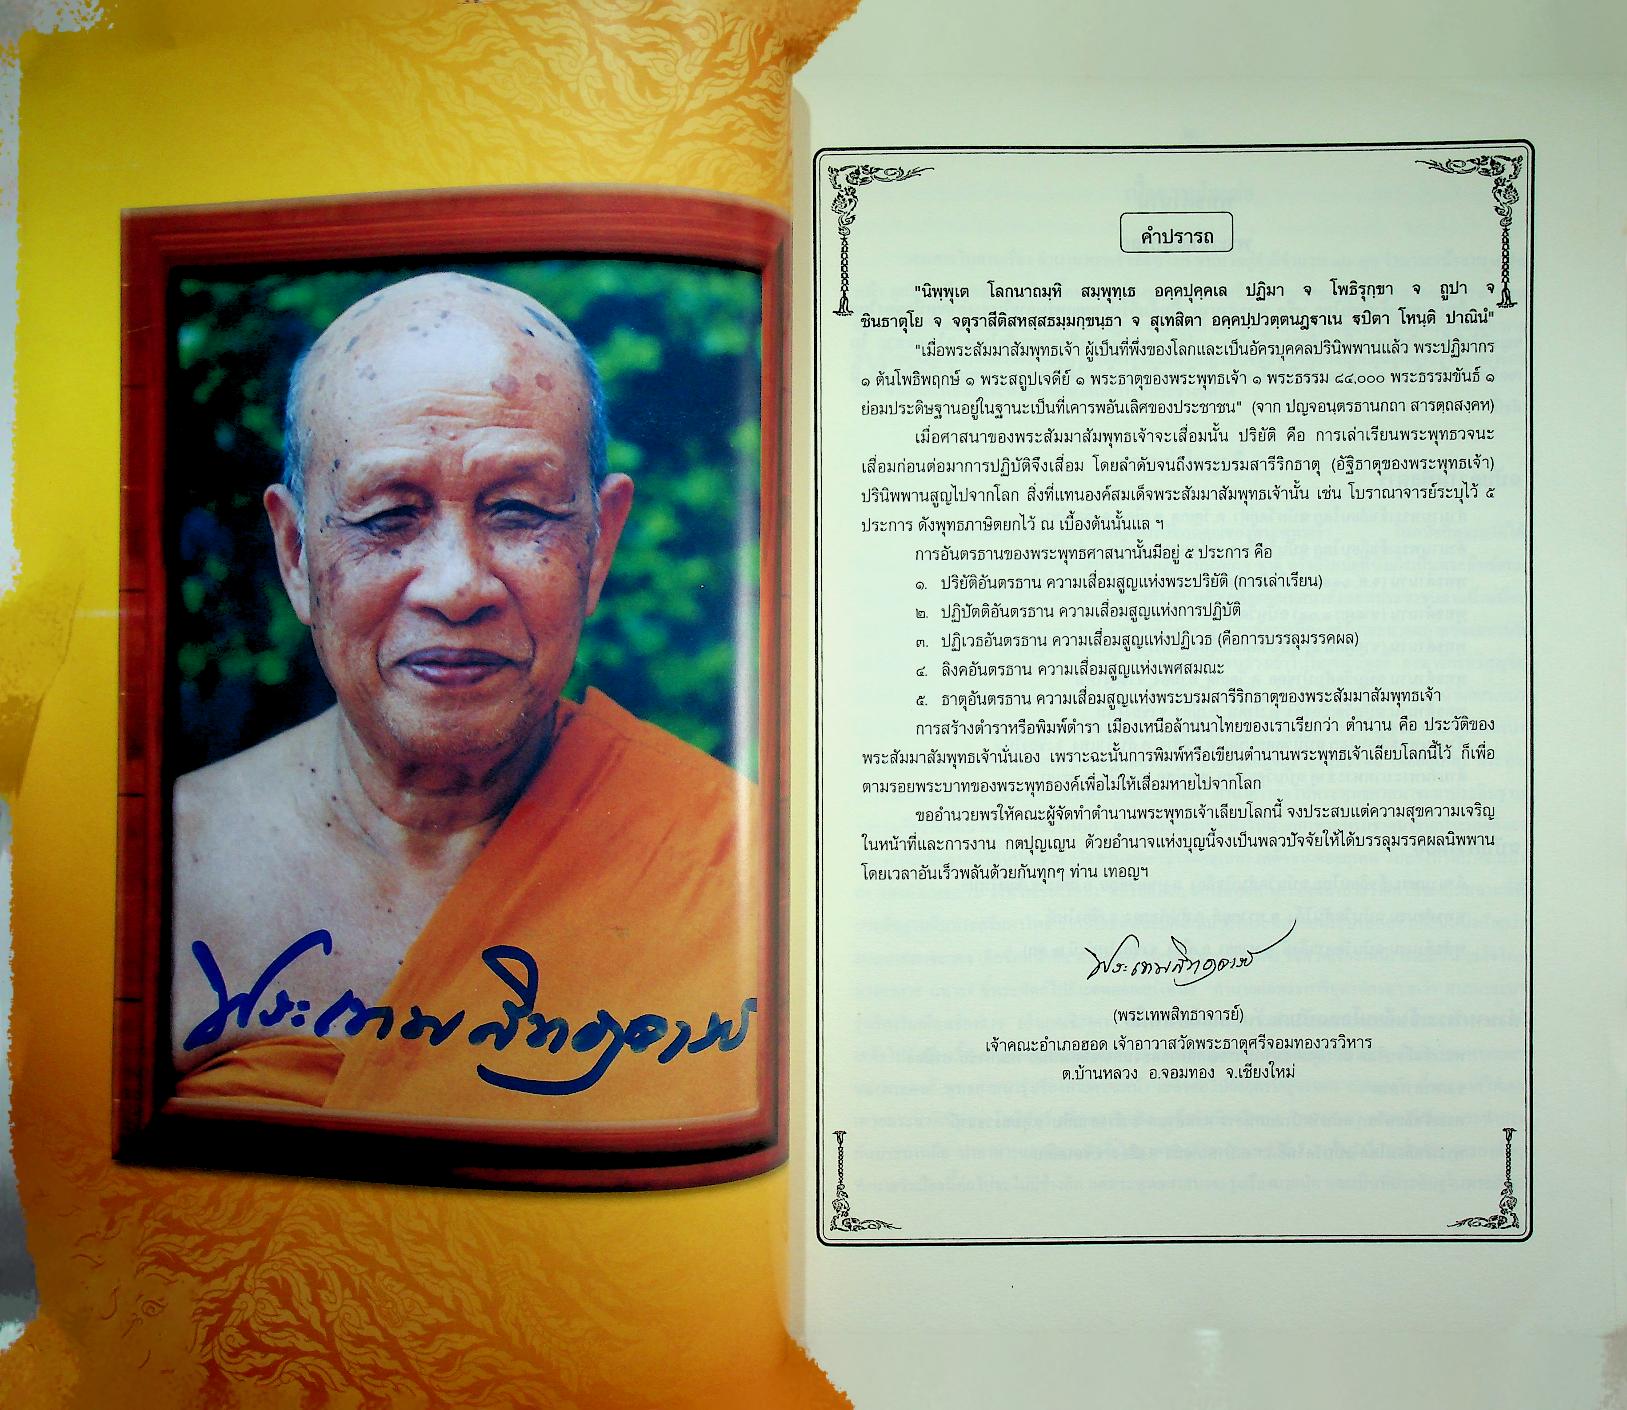 พระเทพสิทธาจารย์
คำปรารถ
"นิพฺพุเต โลกนาถมฺหิ สมฺพุทฺเธ อคฺคปุคฺคเล ปฏิมา จ โพธิรุกฺขา จ ถูปา จ
ชินธาตุโย จ จตุราสีติสหสฺสธมฺมกฺขนฺธา จ สุเทสิตา อคฺคปฺปวตฺตนฏฺฐาเน ฐปิตา โหนฺติ ปาณินํ"
"เมื่อพระสัมมาสัมพุทธเจ้า ผู้เป็นที่พึ่งของโลกและเป็นอัครบุคคลปรินิพพานแล้ว พระปฏิมากร
๑ ต้นโพธิพฤกษ์ ๑ พระสถูปเจดีย์ ๑ พระธาตุของพระพุทธเจ้า ๑ พระธรรม ๘๔,๐๐๐ พระธรรมขันธ์ ๑
ย่อมประดิษฐานอยู่ในฐานะเป็นที่เคารพอันเลิศของประชาชน" (จาก ปญจอนฺตรธานกถา สารตฺถสงฺคห)
เมื่อศาสนาของพระสัมมาสัมพุทธเจ้าจะเสื่อมนั้น ปริยัติ คือ การเล่าเรียนพระพุทธวจนะ
เสื่อมก่อนต่อมาการปฏิบัติจึงเสื่อม โดยลำดับจนถึงพระบรมสารีริกธาตุ (อัฐิธาตุของพระพุทธเจ้า)
ปรินิพพานสูญไปจากโลก สิ่งที่แทนองค์สมเด็จพระสัมมาสัมพุทธเจ้านั้น เช่น โบราณาจารย์ระบุไว้ ๕
ประการ ดังพุทธภาษิตยกไว้ ณ เบื้องต้นนั้นแล ฯ
การอันตรธานของพระพุทธศาสนานั้นมีอยู่ ๕ ประการ คือ
๑. ปริยัติอันตรธาน ความเสื่อมสูญแห่งพระปริยัติ (การเล่าเรียน)
๒. ปฏิปัตติอันตรธาน ความเสื่อมสูญแห่งการปฏิบัติ
๓. ปฏิเวธอันตรธาน ความเสื่อมสูญแห่งปฏิเวธ (คือการบรรลุมรรคผล)
๔. ลิงคอันตรธาน ความเสื่อมสูญแห่งเพศสมณะ
๕. ธาตุอันตรธาน ความเสื่อมสูญแห่งพระบรมสารีริกธาตุของพระสัมมาสัมพุทธเจ้า
การสร้างตำราหรือพิมพ์ตำรา เมืองเหนือล้านนาไทยของเราเรียกว่า ตำนาน คือ ประวัติของ
พระสัมมาสัมพุทธเจ้านั่นเอง เพราะฉะนั้นการพิมพ์หรือเขียนตำนานพระพุทธเจ้าเลียบโลกนี้ไว้ ก็เพื่อ
ตามรอยพระบาทของพระพุทธองค์เพื่อไม่ให้เสื่อมหายไปจากโลก
ขออำนวยพรให้คณะผู้จัดทำตำนานพระพุทธเจ้าเลียบโลกนี้ จงประสบแต่ความสุขความเจริญ
ในหน้าที่และการงาน กตปุญฺเญน ด้วยอำนาจแห่งบุญนี้จงเป็นพลวปัจจัยให้ได้บรรลุมรรคผลนิพพาน
โดยเวลาอันเร็วพลันด้วยกันทุกๆ ท่าน เทอญฯ
พระเทพสิทธาจารย์
(พระเทพสิทธาจารย์)
เจ้าคณะอำเภอฮอด เจ้าอาวาสวัดพระธาตุศรีจอมทองวรวิหาร
ต.บ้านหลวง อ.จอมทอง จ.เชียงใหม่